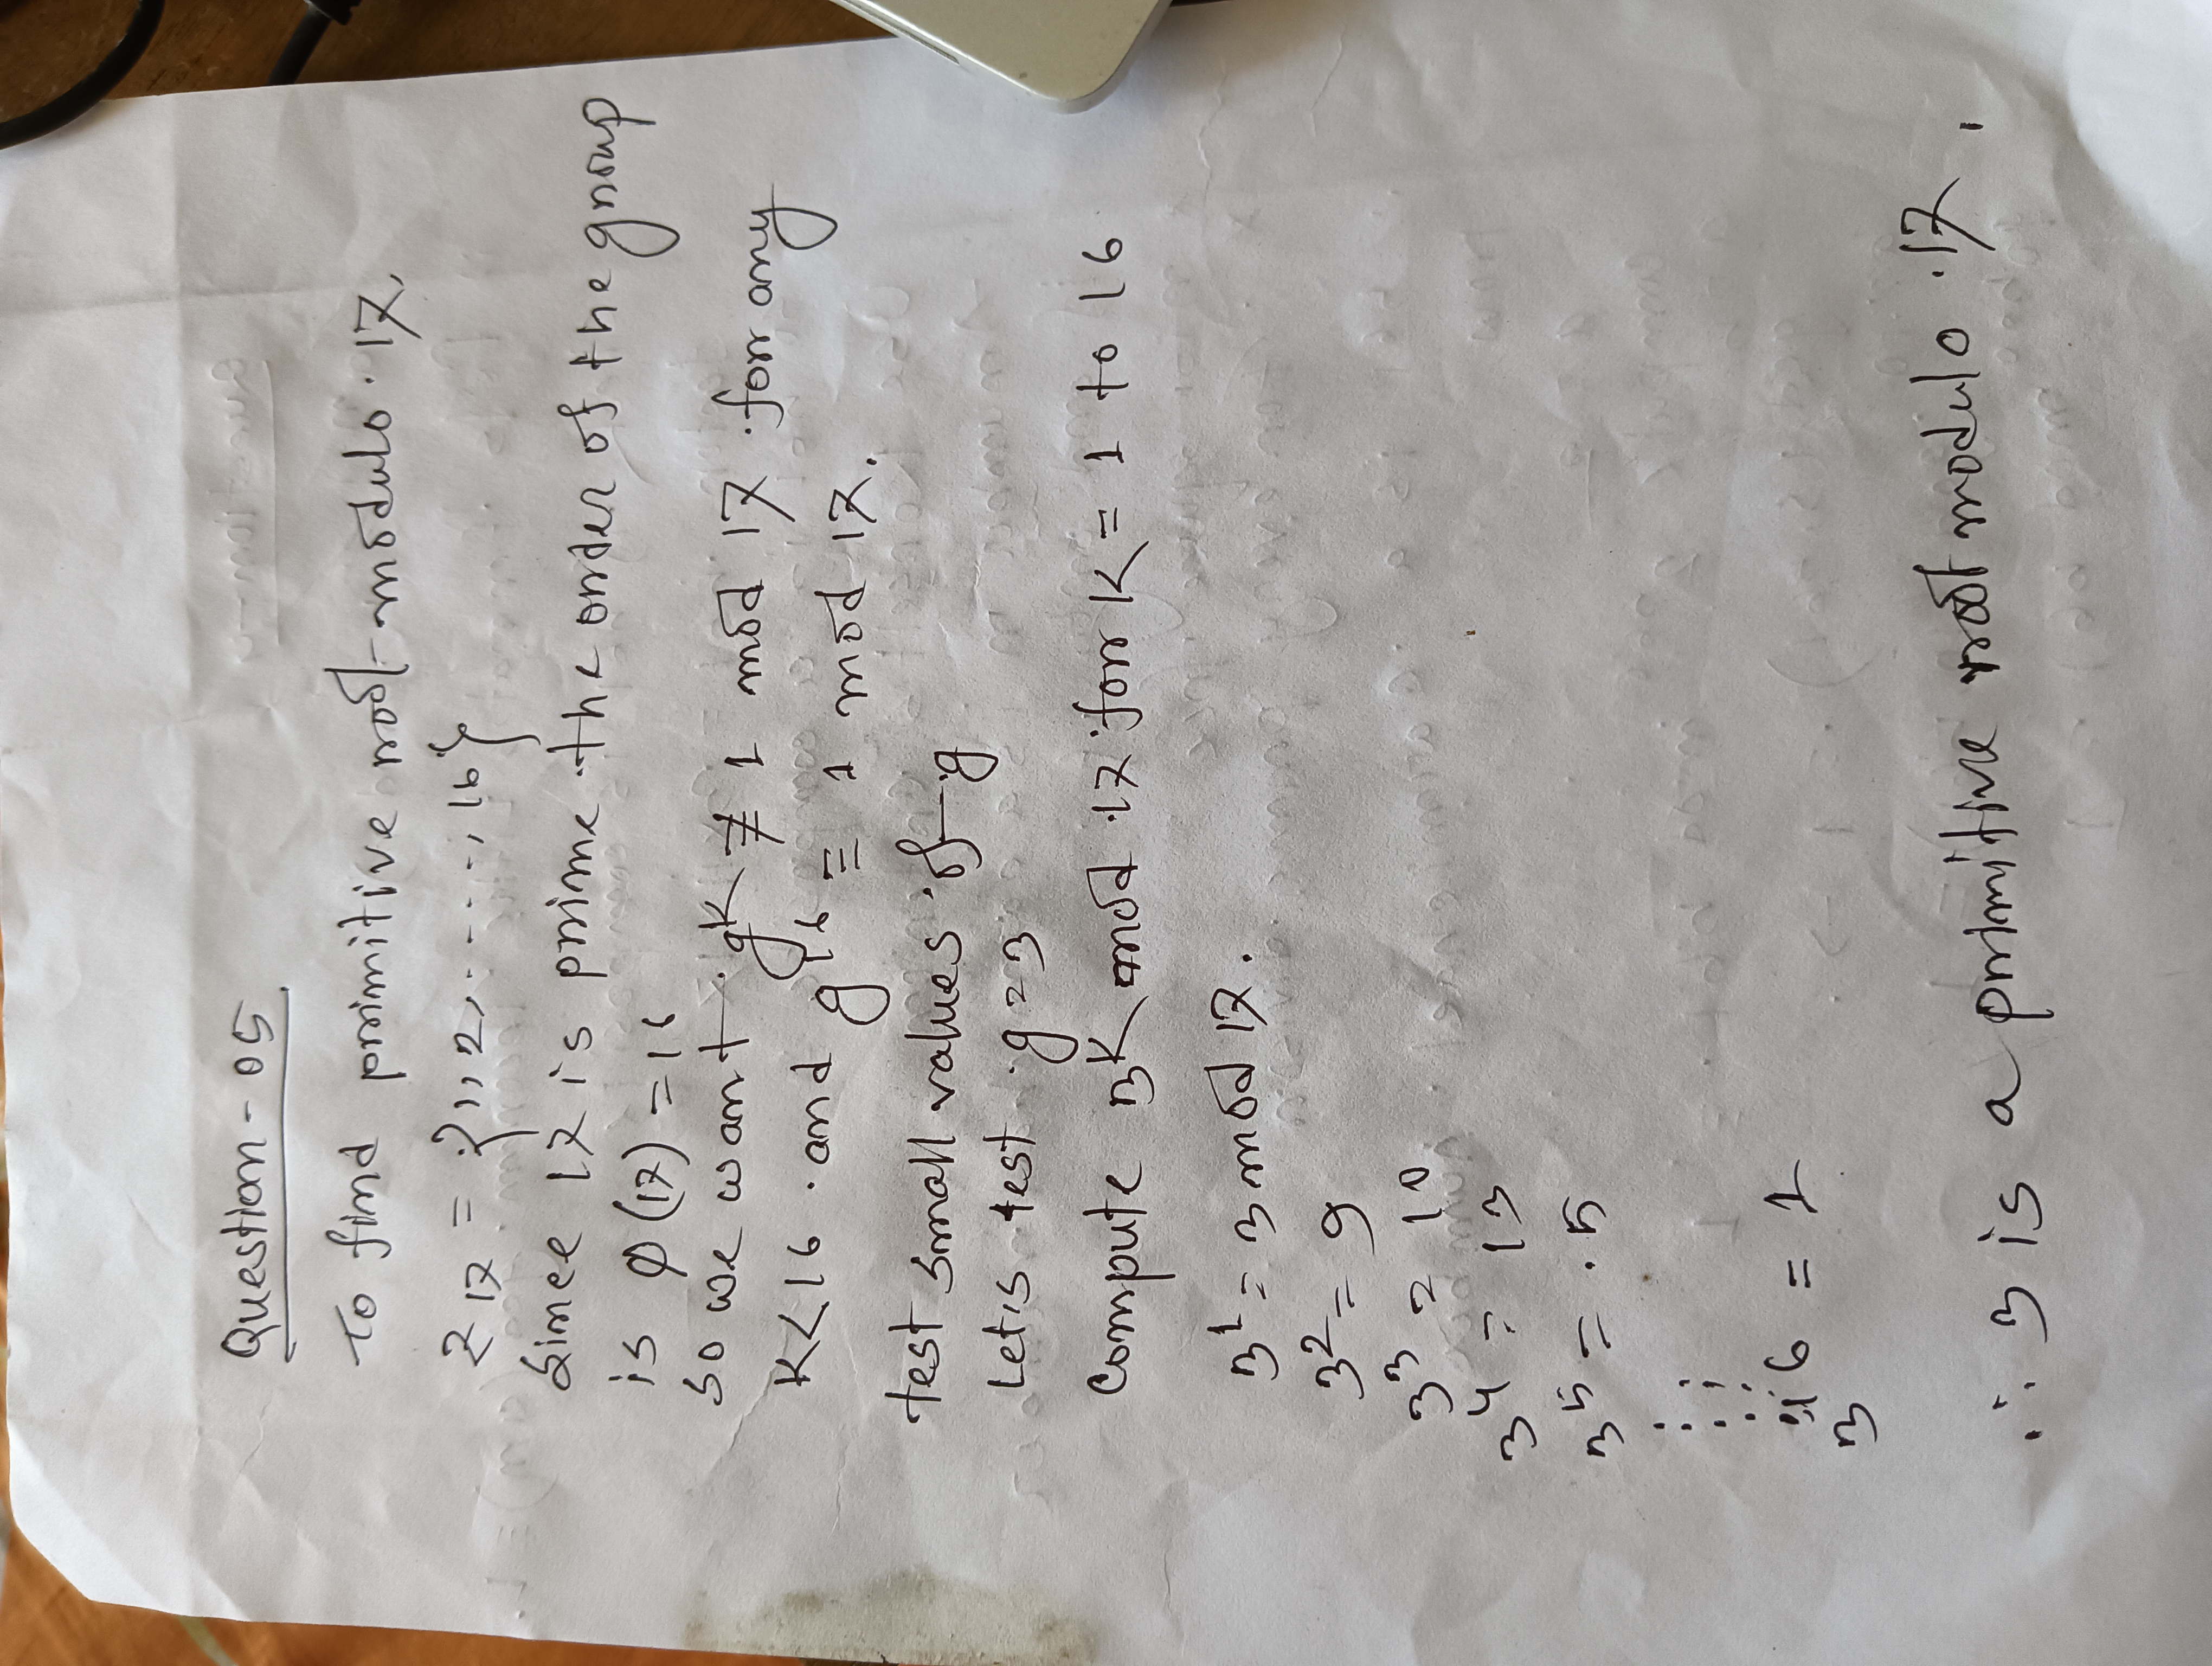 Question-05
To find primitive root modulo 17,
Z 17 = {1, 2, ......, 16}
Since 17 is prime the order of the group
is φ(17) = 16
so we want g^k ≢ 1 mod 17 for any
K<16 and g^16 ≡ 1 mod 17.
test small values of g
Let's test g=3
Compute 3^K mod 17 for K = 1 to 16
3^1 = 3 mod 17.
3^2 = 9
3^3 = 10
3^4 = 13
3^5 = 5
3^16 = 1
∴ 3 is a primitive root modulo 17.